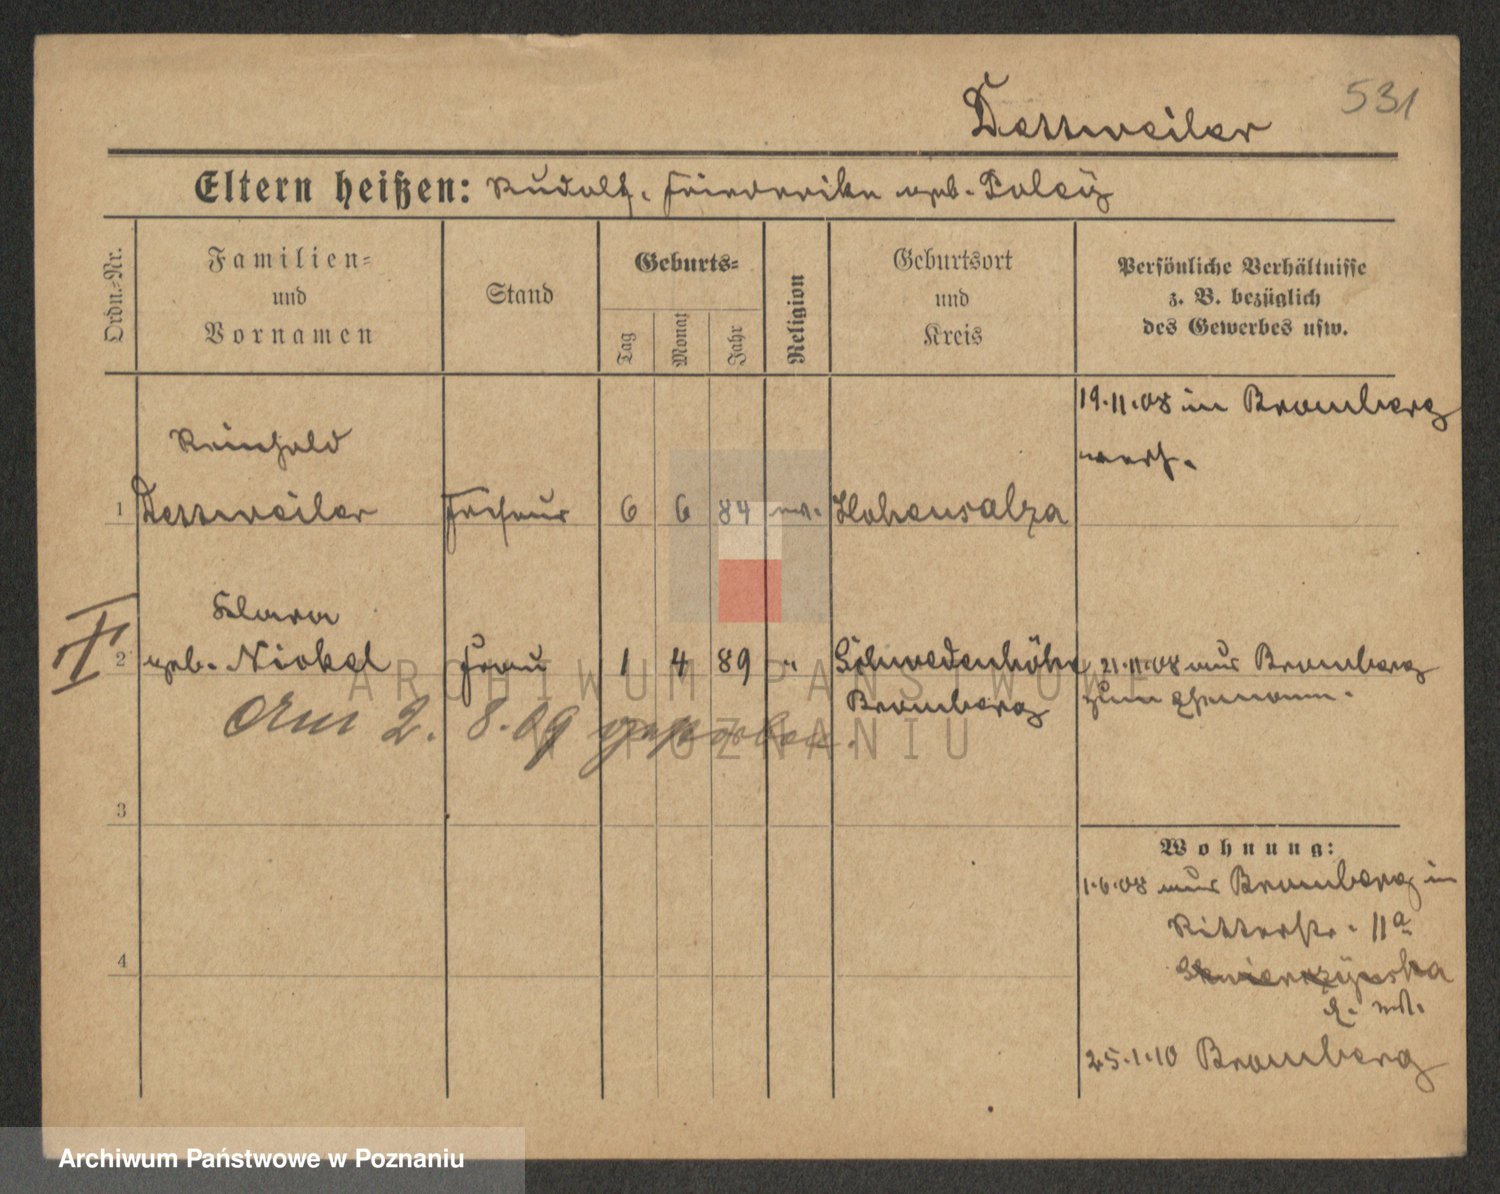 531
Dettweiler
Eltern heißen: Rudolf. Friederike geb. Poley
Ordn.-Nr.
Familien-
und
Vornamen
Stand
Geburts-
Tag
Monat
Jahr
Religion
Geburtsort
und
Kreis
Persönliche Verhältnisse
z. B. bezüglich
des Gewerbes usw.
19.11.08 in Bromberg
verh.
Reinhold
1 Dettweiler Friseur 6 6 84 ev. Hohensalza
Klara
2 geb. Nickel Frau 1 4 89 " Schwedenhöhe
Bromberg
21.11.08 aus Bromberg
zum Ehemann.
Am 2. 8.09 gestorben.
3
4
Wohnung:
1.6.08 aus Bromberg in
Ritterstr. 11a
25.1.10 Bromberg
ARCHIWUM PAŃSTWOWE
W POZNANIU
Archiwum Państwowe w Poznaniu